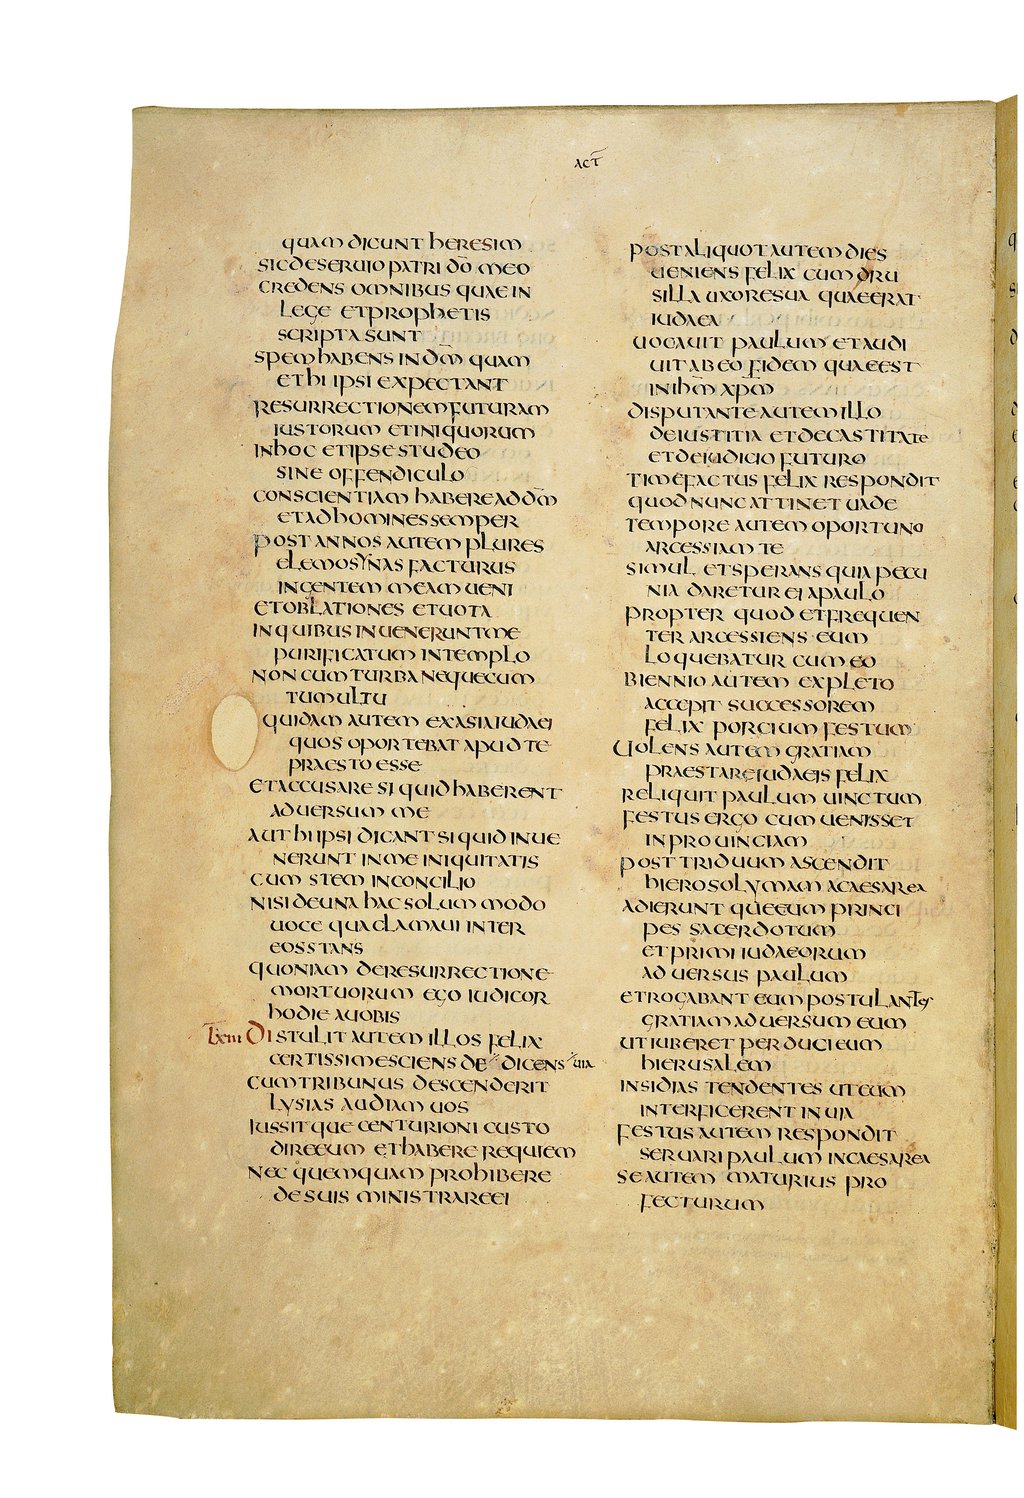 ACT̅
QUAM DICUNT HERESIM
SIC DESERUIO PATRI DO̅ MEO
CREDENS OMNIBUS QUAE IN
LEGE ET PROPHETIS
SCRIPTA SUNT
SPEM HABENS IN DM̅ QUAM
ET HI IPSI EXPECTANT
RESURRECTIONEM FUTURAM
IUSTORUM ET INIQUORUM
IN HOC ET IPSE STUDEO
SINE OFFENDICULO
CONSCIENTIAM HABERE AD DM̅
ET AD HOMINES SEMPER
POST ANNOS AUTEM PLURES
ELEMOSYNAS FACTURUS
IN GENTEM MEAM UENI
ET OBLATIONES ET UOTA
IN QUIBUS INUENERUNT ME
PURIFICATUM IN TEMPLO
NON CUM TURBA NEQUE CUM
TUMULTU
QUIDAM AUTEM EX ASIA IUDAEI
QUOS OPORTEBAT APUD TE
PRAESTO ESSE
ET ACCUSARE SI QUID HABERENT
ADUERSUM ME
AUT HI IPSI DICANT SI QUID INUE
NERUNT IN ME INIQUITATIS
CUM STEM IN CONCILIO
NISI DE UNA HAC SOLUM MODO
UOCE QUA CLAMAUI INTER
EOS STANS
QUONIAM DE RESURRECTIONE
MORTUORUM EGO IUDICOR
HODIE A UOBIS
DISTULIT AUTEM ILLOS FELIX
CERTISSIME SCIENS DE DICENS UIA
CUM TRIBUNUS DESCENDERIT
LYSIAS AUDIAM UOS
IUSSITQUE CENTURIONI CUSTO
DIRE EUM ET HABERE REQUIEM
NEC QUEMQUAM PROHIBERE
DE SUIS MINISTRARE EI
POST ALIQUOT AUTEM DIES
UENIENS FELIX CUM DRU
SILLA UXORE SUA QUAE ERAT
IUDAEA
UOCAUIT PAULUM ET AUDI
UIT AB EO FIDEM QUAE EST
IN IHM̅ XPM̅
DISPUTANTE AUTEM ILLO
DE IUSTITIA ET DE CASTITATE
ET DE IUDICIO FUTURO
TIMEFACTUS FELIX RESPONDIT
QUOD NUNC ATTINET UADE
TEMPORE AUTEM OPORTUNO
ARCESSIAM TE
SIMUL ET SPERANS QUIA PECU
NIA DARETUR EI A PAULO
PROPTER QUOD ET FREQUEN
TER ARCESSIENS EUM
LOQUEBATUR CUM EO
BIENNIO AUTEM EXPLETO
ACCEPIT SUCCESSOREM
FELIX PORCIUM FESTUM
UOLENS AUTEM GRATIAM
PRAESTARE IUDAEIS FELIX
RELIQUIT PAULUM UINCTUM
FESTUS ERGO CUM UENISSET
IN PROUINCIAM
POST TRIDUUM ASCENDIT
HIEROSOLYMAM A CAESAREA
ADIERUNTQUE EUM PRINCI
PES SACERDOTUM
ET PRIMI IUDAEORUM
ADUERSUS PAULUM
ET ROGABANT EUM POSTULANTES
GRATIAM ADUERSUM EUM
UT IUBERET PERDUCI EUM
HIERUSALEM
INSIDIAS TENDENTES UT EUM
INTERFICERENT IN UIA
FESTUS AUTEM RESPONDIT
SERUARI PAULUM IN CAESAREA
SE AUTEM MATURIUS PRO
FECTURUM